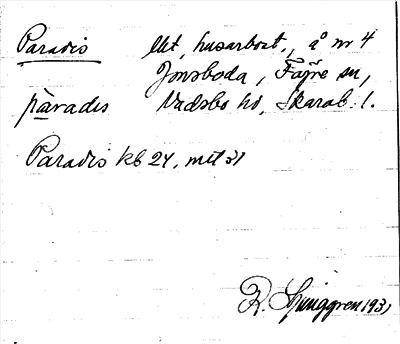 Paradis lht, husarbost., å nr 4
Jonsboda, Fågre sn,
pàradis Vadsbo hd, Skarab. l.
Paradis kb 24, mtl 31
R. Ljunggren 1931